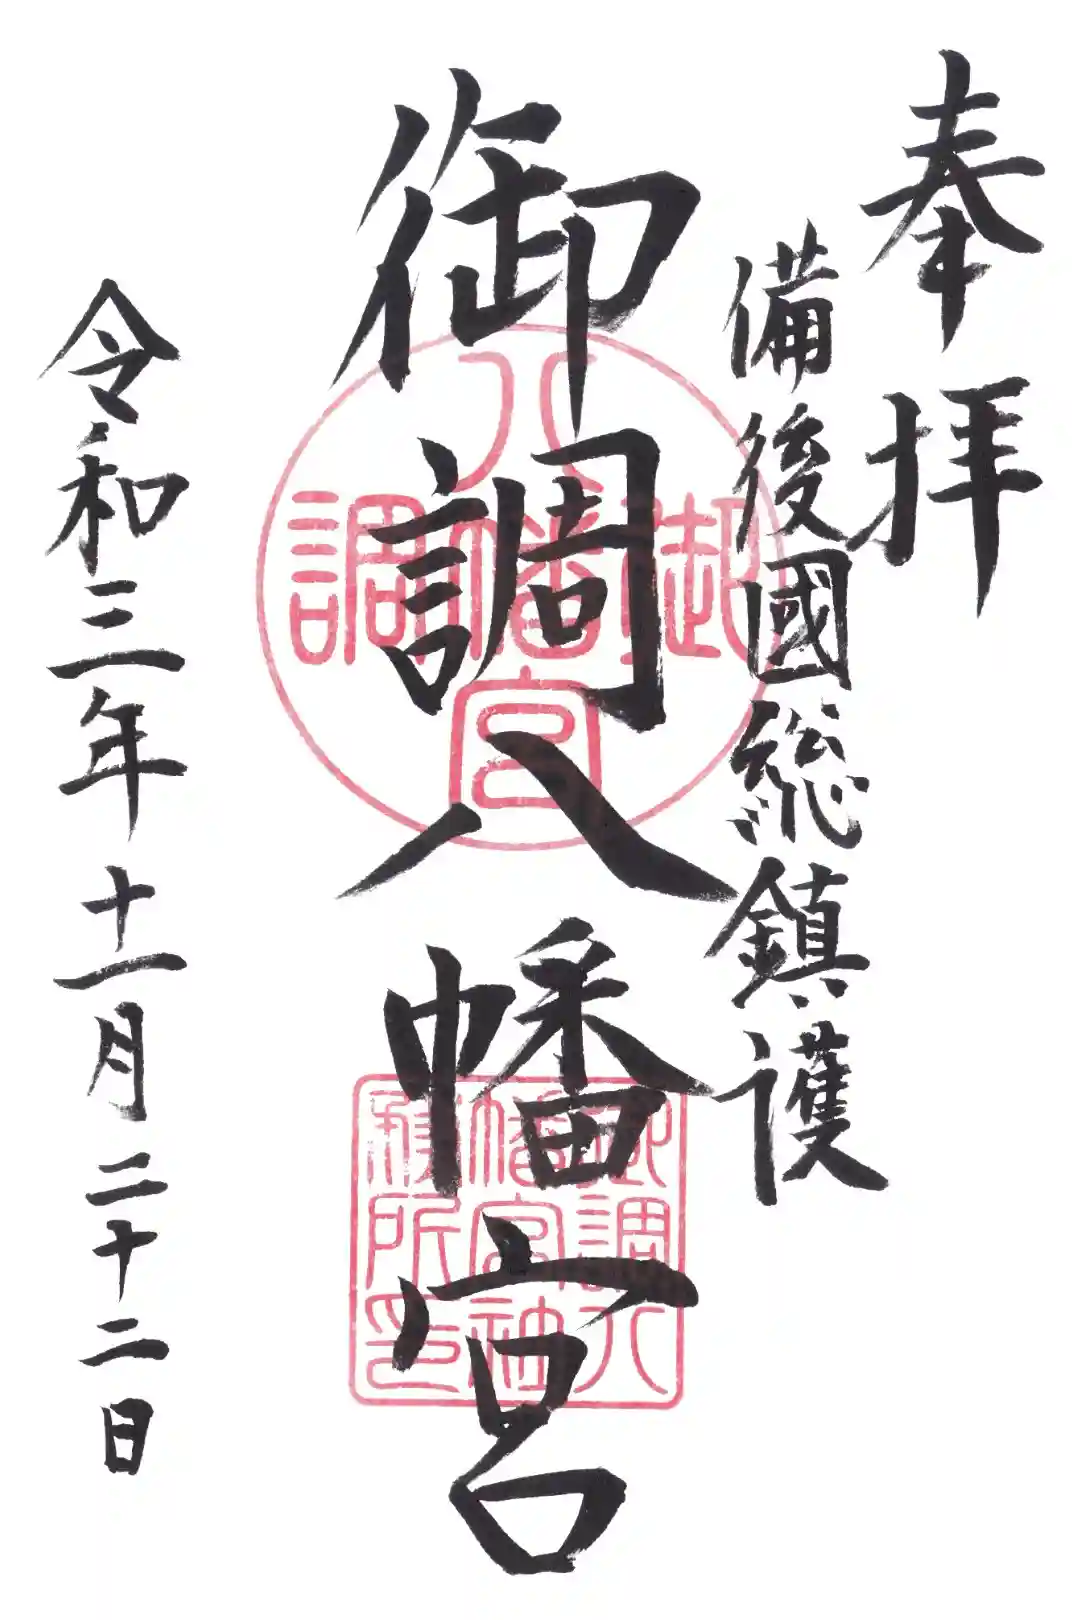 奉拝
備後國総鎮護
御調八幡宮
御調八幡宮
御調八幡宮社務所印
令和三年十一月二十二日